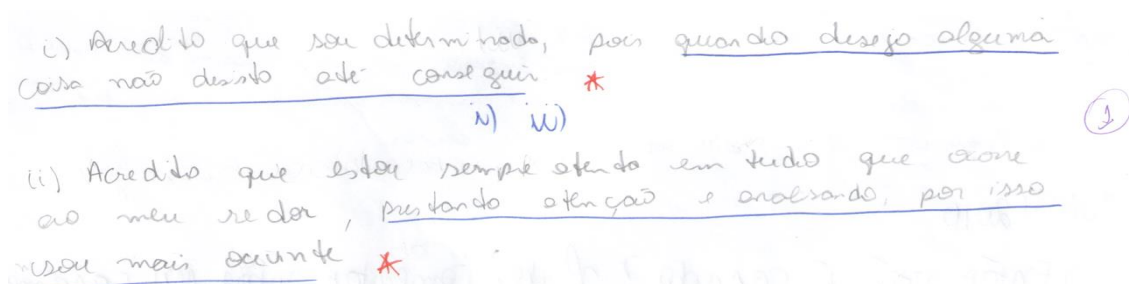 i) Acredito que sou determinada, pois quando desejo alguma
coisa não desisto até conseguir *
ii) iii)
1
(i) Acredito que estou sempre atenta em tudo que ocorre
ao meu redor, prestando atenção e analisando, por isso
sou mais ouvinte *